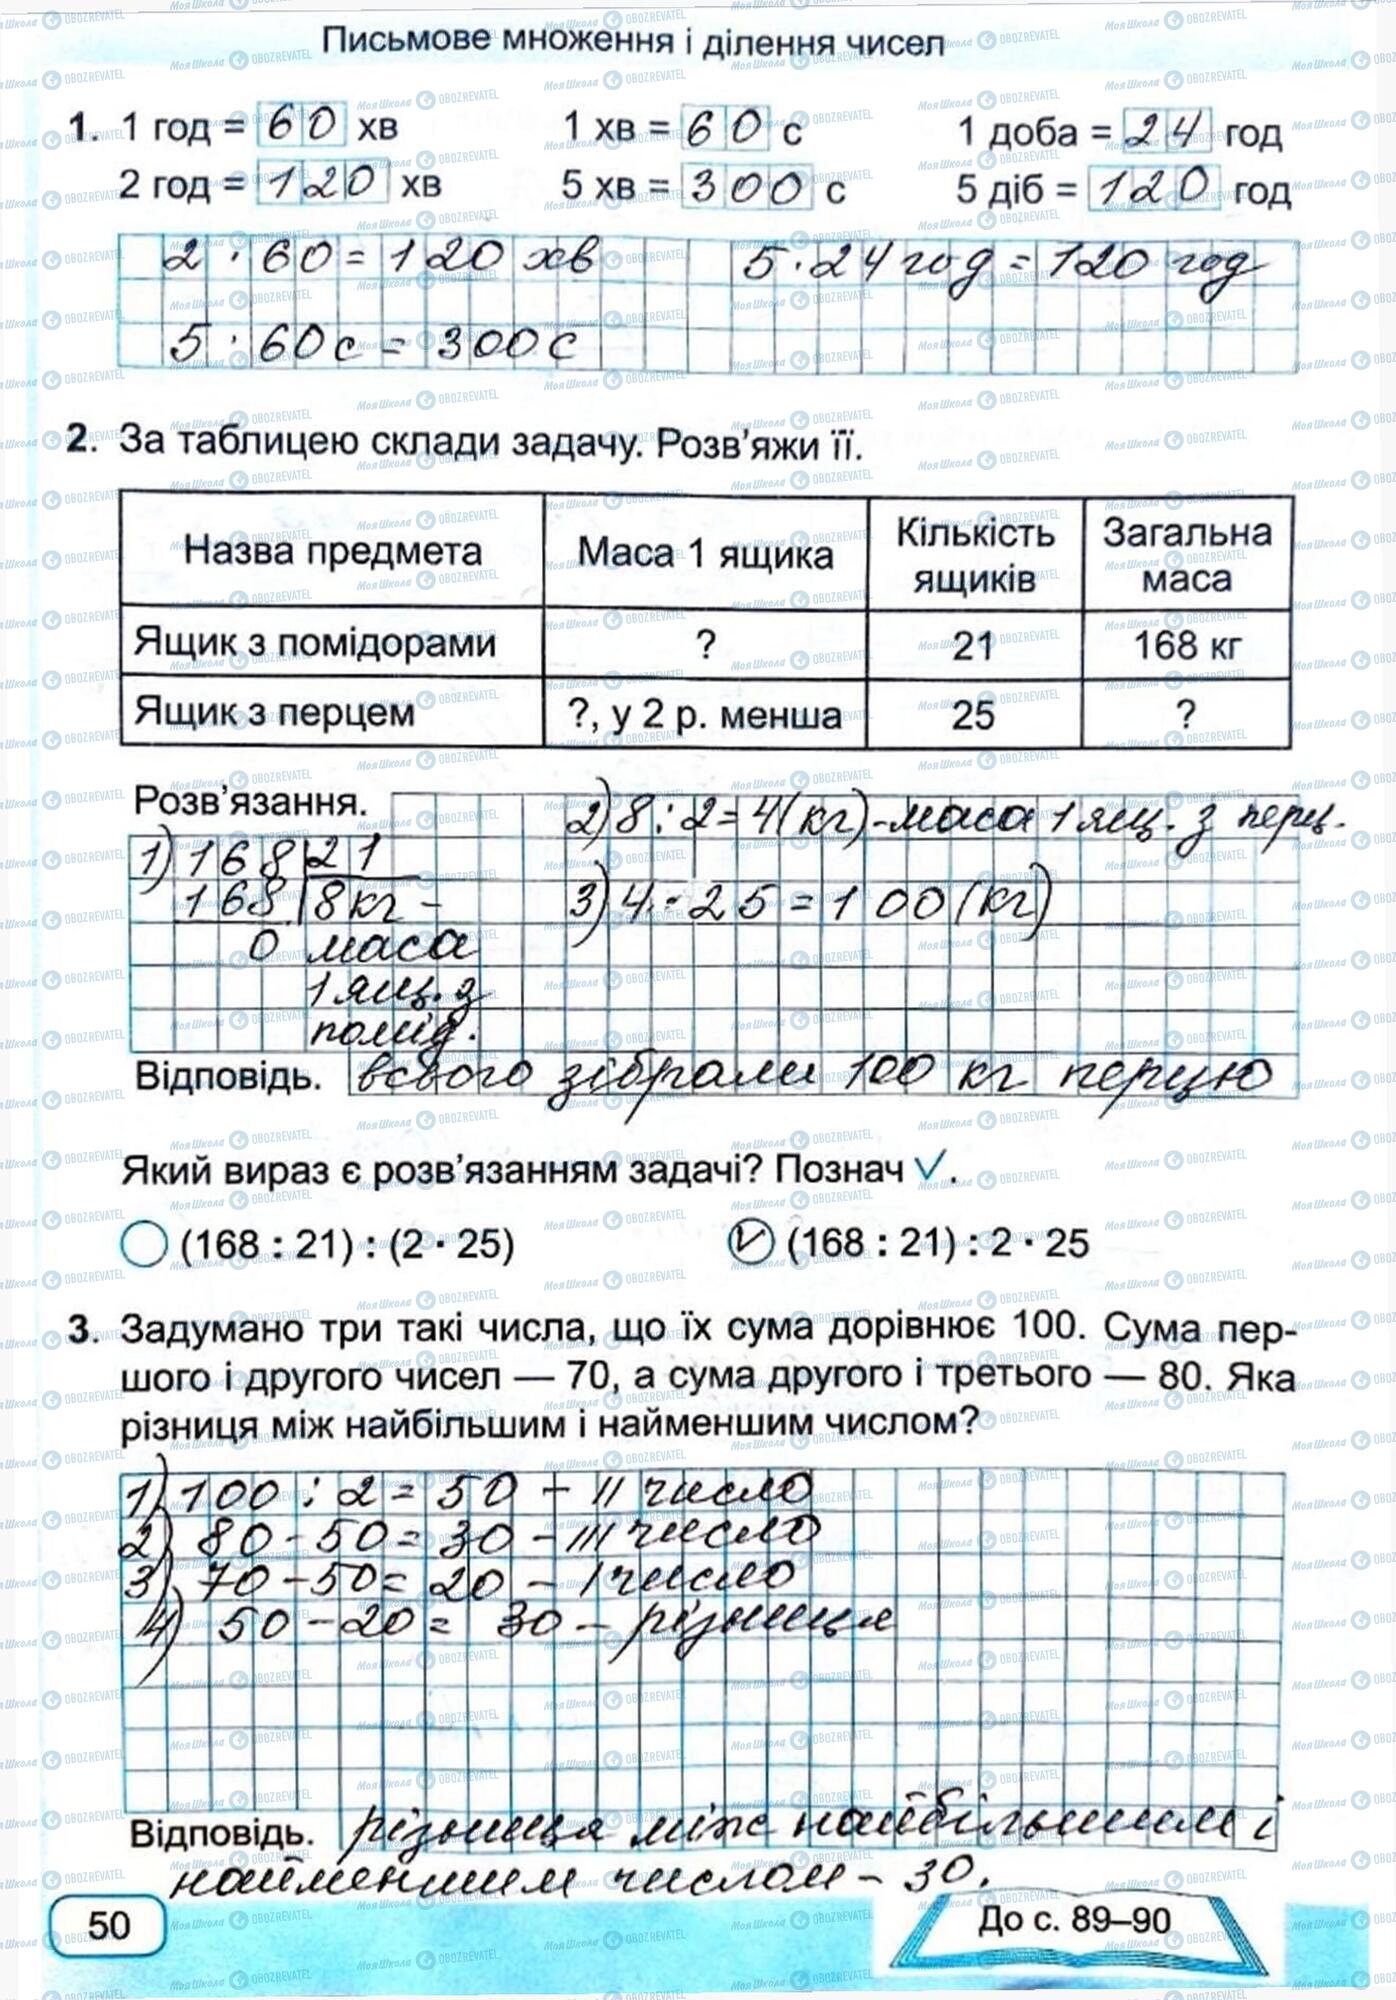 Письмове множення і ділення чисел
1. 1 год = 60 хв 1 хв = 60 с 1 доба = 24 год
2 год = 120 хв 5 хв = 300 с 5 діб = 120 год
2 · 60 = 120 хв 5 · 24 год = 120 год
5 · 60 с = 300 с
2. За таблицею склади задачу. Розв'яжи її.
Назва предмета Маса 1 ящика Кількість ящиків Загальна маса
Ящик з помідорами ? 21 168 кг
Ящик з перцем ?, у 2 р. менша 25 ?
Розв'язання.
2) 8 : 2 = 4 (кг) - маса 1 ящ. з перц.
1) 168 21
168 8 кг -
3) 4 · 25 = 100 (кг)
0 маса
1 ящ. з
помід.
Відповідь. всього зібрали 100 кг перцю
Який вираз є розв'язанням задачі? Познач √.
(168 : 21) : (2 · 25) √ (168 : 21) : 2 · 25
3. Задумано три такі числа, що їх сума дорівнює 100. Сума пер-
шого і другого чисел — 70, а сума другого і третього — 80. Яка
різниця між найбільшим і найменшим числом?
1) 100 : 2 = 50 - II число
2) 80 - 50 = 30 - III число
3) 70 - 50 = 20 - I число
4) 50 - 20 = 30 - різниця
Відповідь. різниця між найбільшим і
найменшим числом - 30.
50
До с. 89–90
Моя Школа OBOZREVATEL